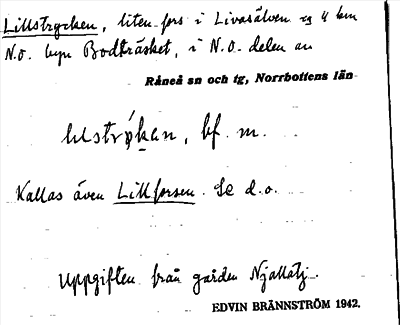 Lillstrycken, liten fors i Livasälven 4 km
N.O. byn Bodträsket, i N.O. delen av
Råneå sn och tg, Norrbottens län
bf. m.
Kallas även Lillforsen. Se d.o.
Uppgiften från gården Njallatj.
EDVIN BRÄNNSTRÖM 1942.